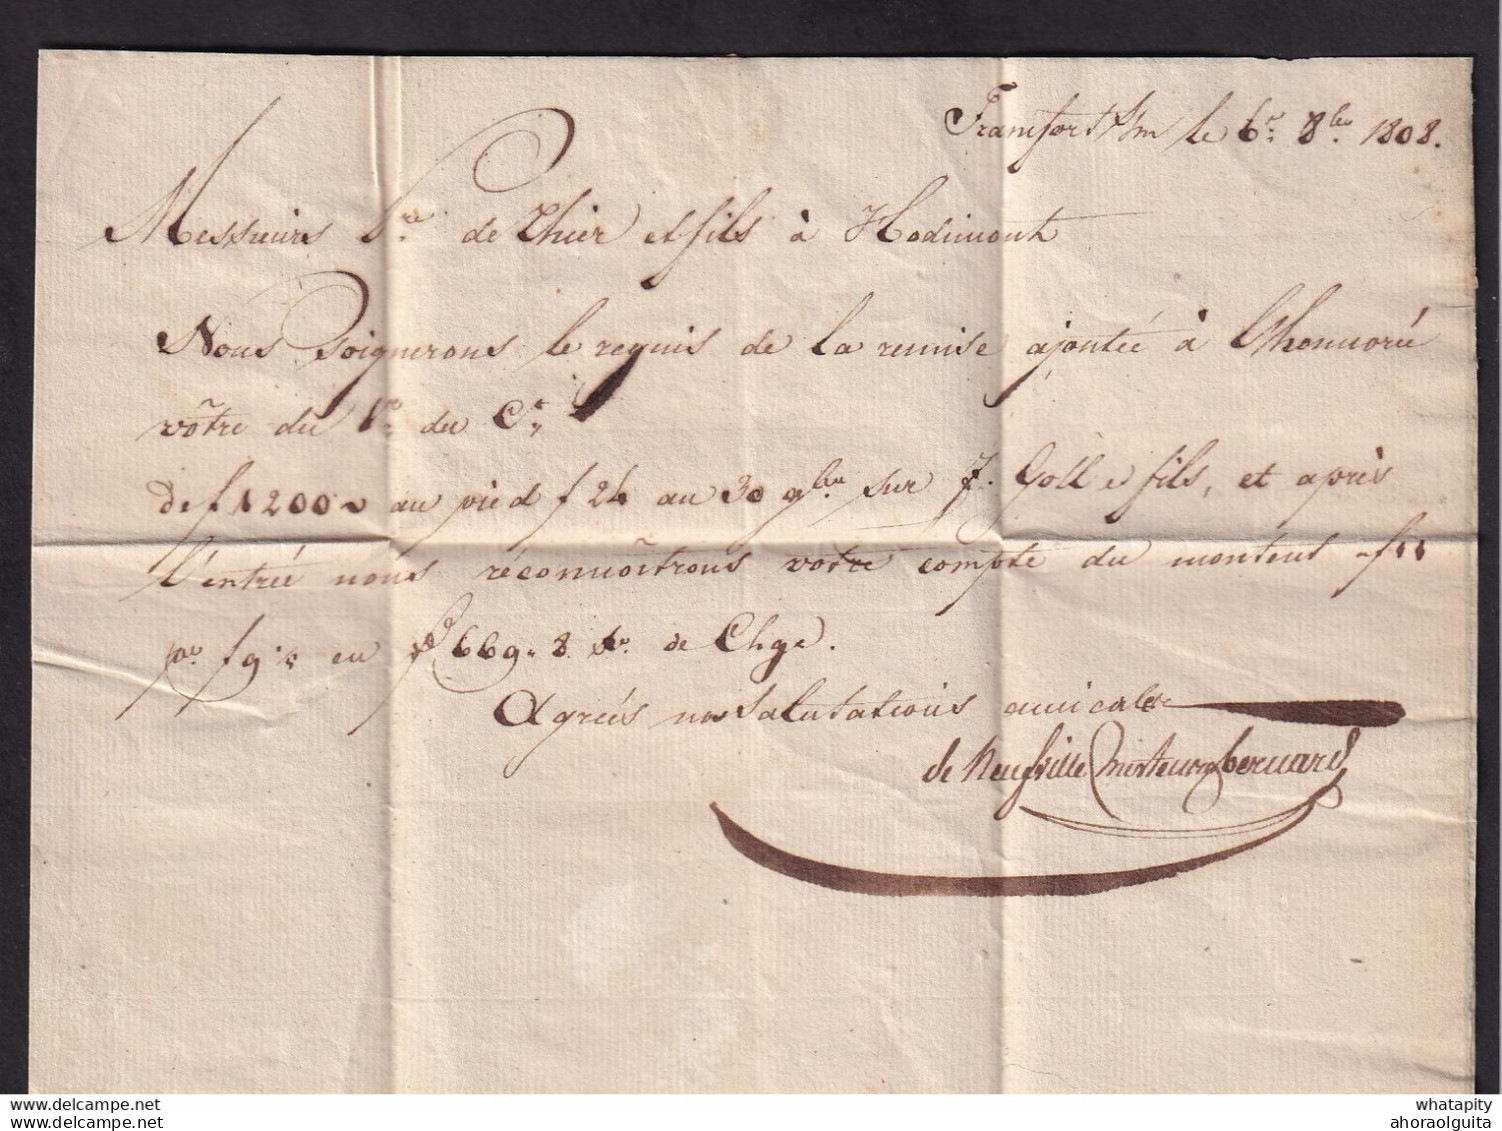 Francfort s/m le 6.e 8bre 1808.
Messieurs de Thier et fils à Hodimont
Nous soignerons le requis de la remise ajoutée à l'honnorée
vôtre du 1.r du C.t
de f 1200 au pied f 24 au 30 9bre sur J. Goll e fils, et après
l'entrée nous réconnoîtrons votre compte du montent
en 669. 8 de Chge.
Agréés nos salutations amicales
de Neufville Mertens Bernard
whatapity
ahoraolguita